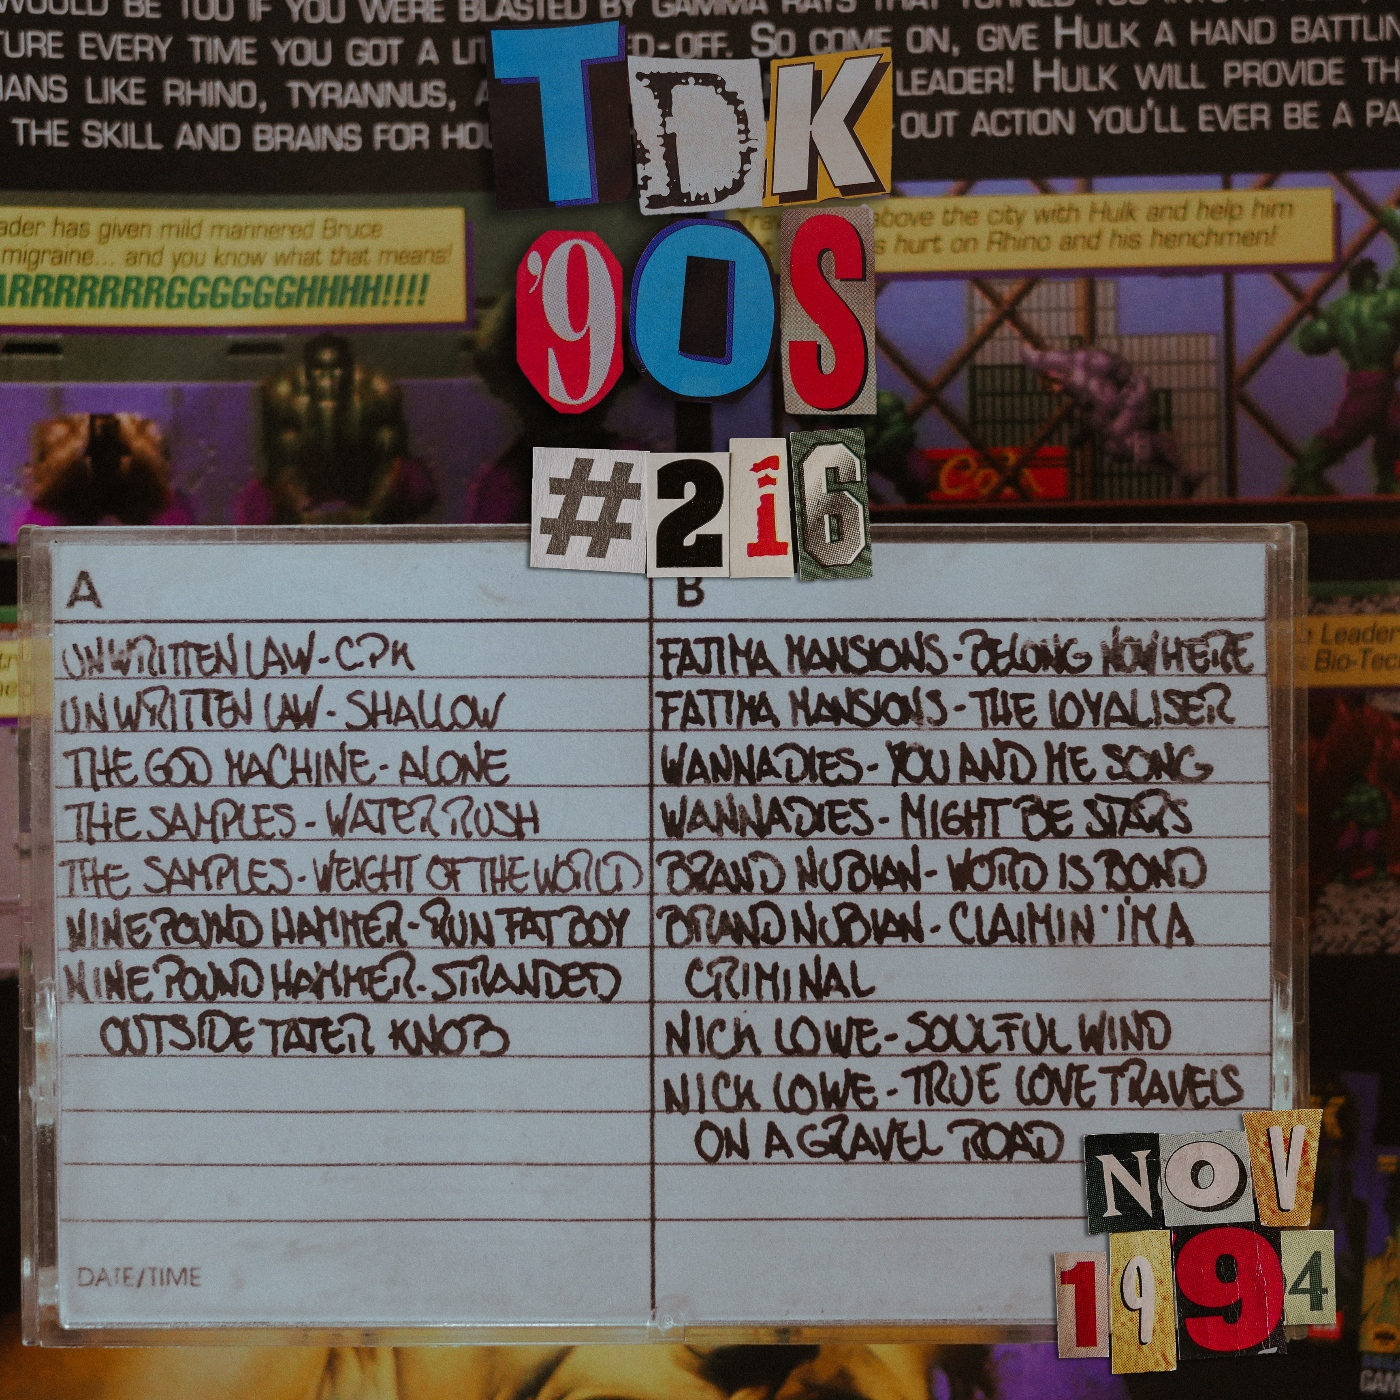 WOULD BE TOO IF YOU WERE BLASTED BY GAMMA RAYS THAT TURNED YOU INTO
TURE EVERY TIME YOU GOT A LIT ED-OFF. SO COME ON, GIVE HULK A HAND BATTLIN
IANS LIKE RHINO, TYRANNUS, A LEADER! HULK WILL PROVIDE TH
THE SKILL AND BRAINS FOR HOU OUT ACTION YOU'LL EVER BE A PA
TDK
'90S
#216
ader has given mild mannered Bruce
migraine... and you know what that means!
ARRRRRRRGGGGGGHHHH!!!!
above the city with Hulk and help him
s hurt on Rhino and his henchmen!
A
UNWRITTEN LAW - C.P.K
UNWRITTEN LAW - SHALLOW
THE GOD MACHINE - ALONE
THE SAMPLES - WATER RUSH
THE SAMPLES - WEIGHT OF THE WORLD
NINE POUND HAMMER - RUN FAT BOY
NINE POUND HAMMER - STRANDED
OUTSIDE TATER KNOB
DATE/TIME
B
FATIMA MANSIONS - BELONG NOWHERE
FATIMA MANSIONS - THE LOYALISER
WANNADIES - YOU AND ME SONG
WANNADIES - MIGHT BE STARS
BRAND NUBIAN - WORD IS BOND
BRAND NUBIAN - CLAIMIN' I'M A
CRIMINAL
NICK LOWE - SOULFUL WIND
NICK LOWE - TRUE LOVE TRAVELS
ON A GRAVEL ROAD
Leader
Bio-Tec
NOV
1994